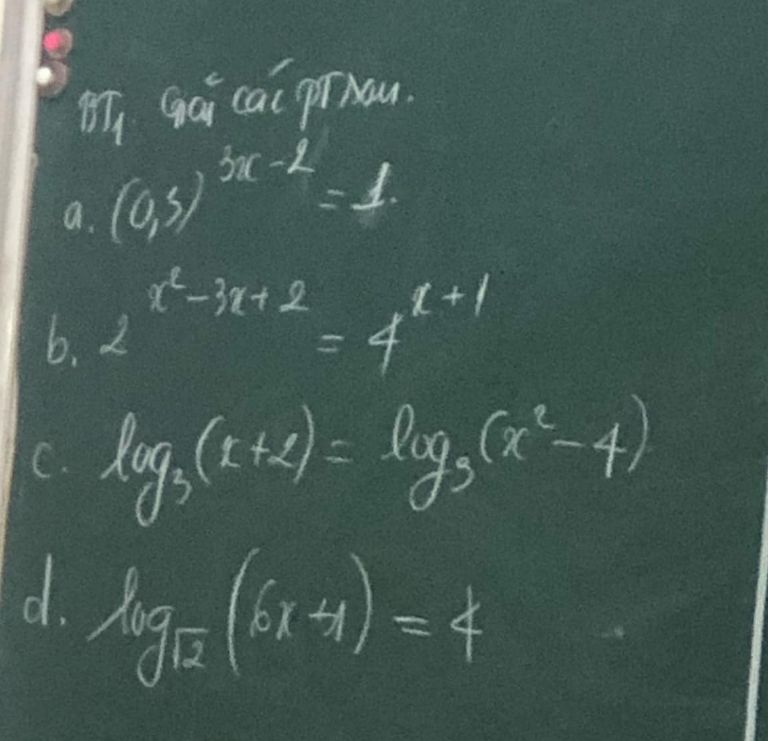 BT1. Giải các pT sau.
a. (0,3)^{3x-2} = 1.
b. 2^{x²-3x+2} = 4^{x+1}
c. log₃(x+2) = log₃(x²-4)
d. log_{√2}(6x+1) = 4